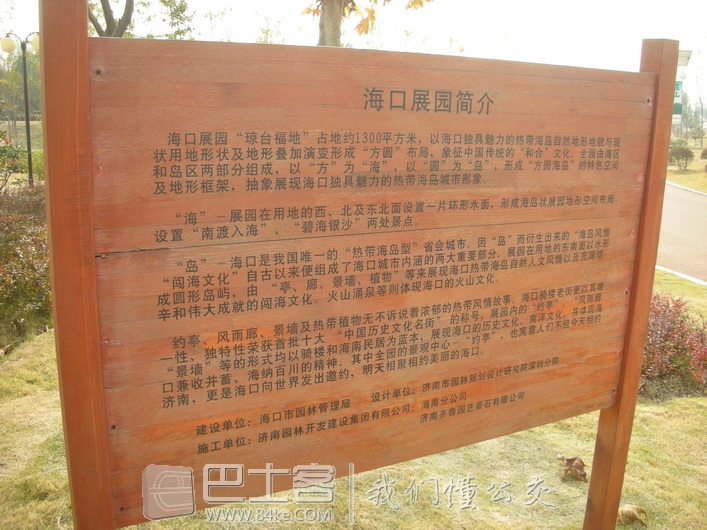 海口展园简介
海口展园“琼台福地”占地约1300平方米，以海口独具魅力的热带海岛自然地形地貌与现
状用地形状及地形叠加演变形成“方圆”布局，象征中国传统的“和合”文化。全园由海区
和岛区两部分组成，以“方”为“海”，以“圆”为“岛”，形成“方圆海岛”的特色空间
及地形框架，抽象展现海口独具魅力的热带海岛城市形象。
“海”－展园在用地的西、北及东北面设置一片环形水面，形成海岛状展园地形空间布局
设置“南渡入海”、“碧海银沙”两处景点。
“岛”－海口是我国唯一的“热带海岛型”省会城市，因“岛”而衍生出来的“海岛风情
“闯海文化”自古以来便组成了海口城市内涵的两大重要部分。展园在用地的东南面以水形
成圆形岛屿，由“亭、廊、景墙、植物”等来展现海口热带海岛自然人文风情以及充满艰
辛和伟大成就的闯海文化。火山涌泉等则体现海口的火山文化。
约亭、风雨廊、景墙及热带植物无不诉说着浓郁的热带风情故事，海口骑楼老街更以其唯
一性、独特性荣获首批十大“中国历史文化名街”的称号，展园内的“约亭”、“风雨廊
“景墙”等的形式均以骑楼和海南民居为蓝本，展现海口的历史文化、海洋文化，并体现海
口兼收并蓄、海纳百川的精神。其中全园的景观中心－“约亭”，也寓意人们不但今天相约
济南，更是海口向世界发出邀约，明天相聚相约美丽的海口。
建设单位：海口市园林管理局 设计单位：济南市园林规划设计研究院深圳分院
施工单位：济南园林开发建设集团有限公司：海南分公司
济南齐鲁园艺景石有限公司
巴士客 我们懂公交
www.84ke.com